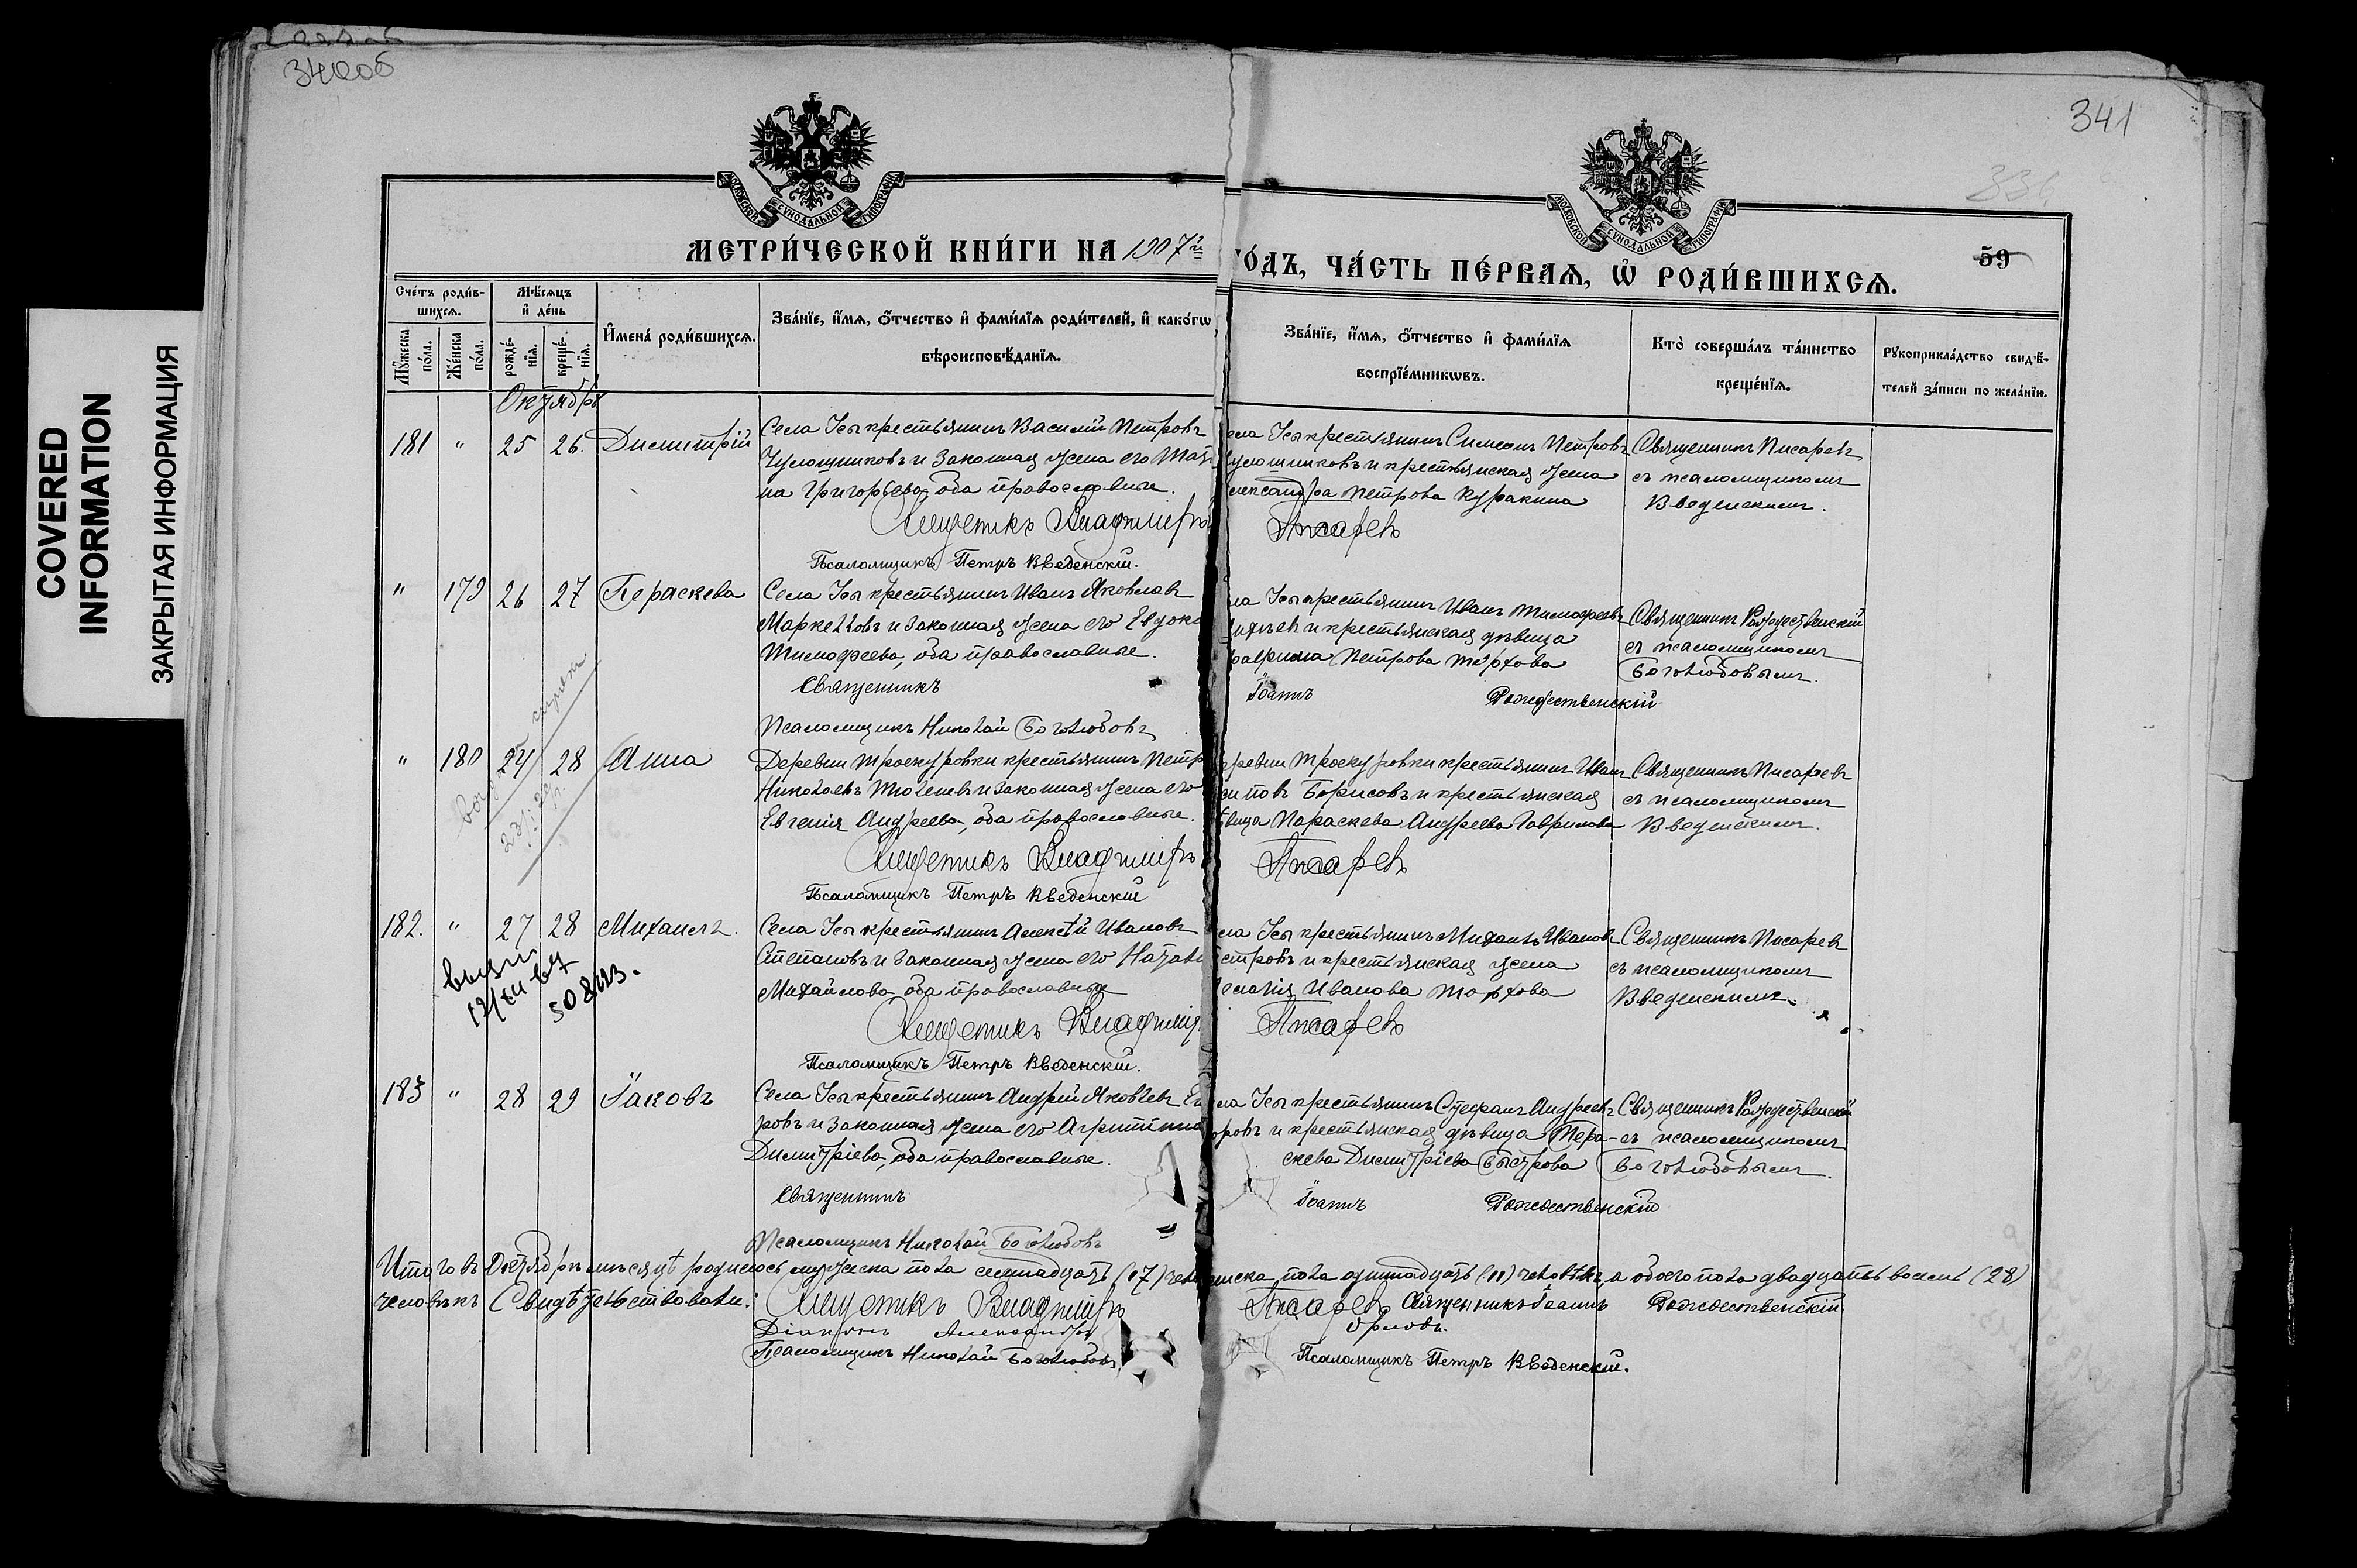 COVERED
INFORMATION
ЗАКРЫТАЯ ИНФОРМАЦИЯ
340об
341
МОСКОВСКОЙ СУНОДАЛЬНОЙ ТИПОГРАФІИ
МОСКОВСКОЙ СУНОДАЛЬНОЙ ТИПОГРАФІИ
59
МЕТРИ́ЧЕСКОЙ КНИ́ГИ НА 1907й
ГО́ДЪ, ЧА́СТЬ ПЕ́РВАѦ, Ѡ҆ РОДИ́ВШИХСѦ.
Сче́тъ роди́в-
шихсѧ.
Мꙋ́жеска
по́ла.
Же́нска
по́ла.
Мѣ́сѧцъ
и҆ де́нь
рожде́-
нїѧ.
креще́-
нїѧ.
И҆мена̀ роди́вшихсѧ.
Зва́нїе, и҆́мѧ, ѻ҆́тчество и҆ фами́лїѧ роди́телей, и҆ како́гѡ
вѣроисповѣ́данїѧ.
Зва́нїе, и҆́мѧ, ѻ҆́тчество и҆ фами́лїѧ
воспрїе́мникѡвъ.
Кто̀ соверша́лъ та́инство
креще́нїѧ.
Рꙋкоприкла́дство свидѣ́-
телей за́писи по жела́нїю.
Октябрь
181 " 25 26. Димитрій
Села Исы крестьянинъ Василій Петровъ
и законная жена его
на Григорьева, оба православные.
Священникъ Владиміръ
Псаломщикъ Петръ Введенскій.
ела Исы крестьянинъ Симеонъ Петровъ
и крестьянская жена
лександра Петрова Куракина
Писаревъ
Священникъ Писаревъ
съ псаломщикомъ
Введенскимъ.
" 179 26 27 Параскева
Села Исы крестьянинъ Иванъ Яковлевъ
Маркеловъ и законная жена его Евдокі
Тимофеева, оба православные.
Священникъ
Псаломщикъ Николай Боголюбовъ
ла Исы крестьянинъ Иванъ Тимофеевъ
и крестьянская дѣвица
Петрова Торхова
Іоаннъ Рождественскій
Священникъ Рождественскій
съ псаломщикомъ
Боголюбовымъ.
" 180 24 28 Анна
Деревни Троекуровки крестьянинъ Петр
Николаевъ Тюленевъ и законная жена его
Евгенія Андреева, оба православные.
Священникъ Владиміръ
Псаломщикъ Петръ Введенскій
ревни Троекуровки крестьянинъ Иванъ
Борисовъ и крестьянская
вица Параскева Андреева Гаврилова
Писаревъ
Священникъ Писаревъ
съ псаломщикомъ
Введенскимъ.
182. " 27 28 Михаилъ.
Села Исы крестьянинъ Алексѣй Ивановъ
Степановъ и законная жена его Натал
Михайлова, оба православные
Священникъ Владимір
Псаломщикъ Петръ Введенскій.
ела Исы крестьянинъ Михаилъ Ивановъ
и крестьянская жена
Иванова Торхова
Писаревъ
Священникъ Писаревъ
съ псаломщикомъ
Введенскимъ.
183 " 28 29 Іаковъ
Села Исы крестьянинъ Андрей Яковлевъ Ег
ровъ и законная жена его Агриппина
Димитріева, оба православные.
Священникъ
Псаломщикъ Николай Боголюбовъ
ла Исы крестьянинъ Стефанъ Андреевъ
оровъ и крестьянская дѣвица Пера-
скева Димитріева Быстрова
Іоаннъ Рождественскій
Священникъ Рождественскій
съ псаломщикомъ
Боголюбовымъ.
Итого въ Октябрѣ мѣсяцѣ родилось мужеска пола семнадцать (17) чело нска пола одиннадцать (11) человѣкъ, а обоего пола двадцать восемь (28)
человѣкъ. Свидѣтельствовали: Священникъ Владиміръ Писаревъ Священникъ Іоаннъ Рождественскій
Діаконъ Александръ Орловъ.
Псаломщикъ Николай Боголюбовъ Псаломщикъ Петръ Введенскій.